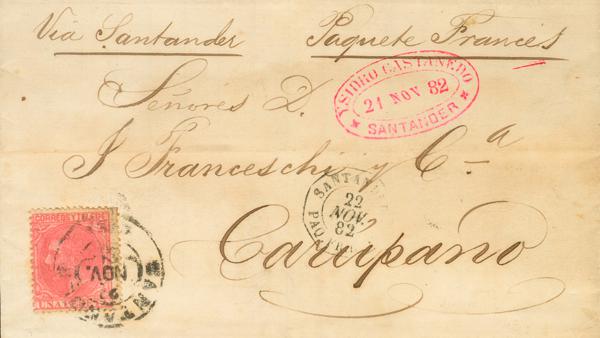 Via Santander Paquete Francés
YSIDRO CASTANEDO
21 NOV 82
SANTANDER
Señores D.
J Franceschi y Cª
SANTAN
22
NOV.
82
PAQUE
Carúpano
CORREOS Y
UNA
NOV.
SANTAN